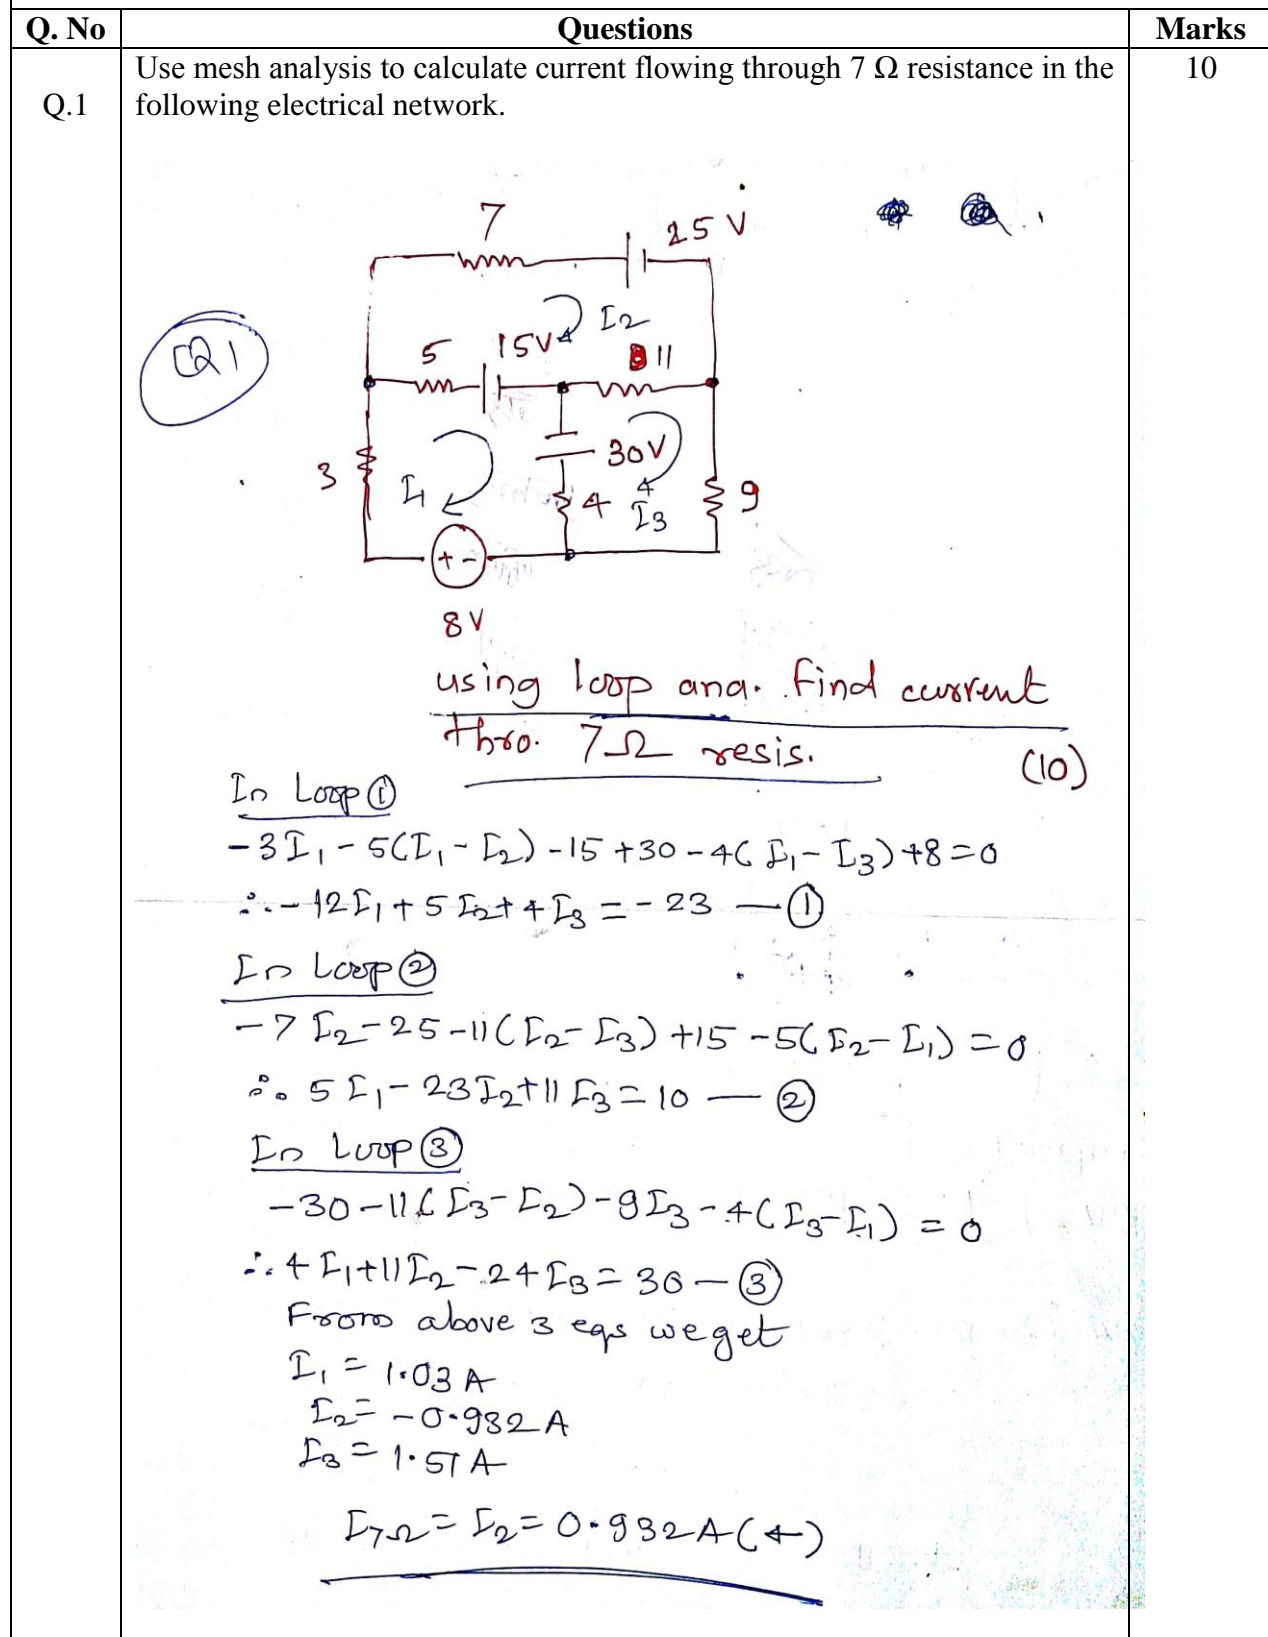 Q. No Questions Marks
Use mesh analysis to calculate current flowing through 7 Ω resistance in the 10
Q.1 following electrical network.
7
25 V
I2
Q1
5 15V 11
30V
3 I1 4 I3 9
+ -
8V
using loop ana. find current
thro. 7Ω resis. (10)
In Loop ①
-3I1 - 5(I1 - I2) - 15 + 30 - 4(I1 - I3) + 8 = 0
∴ -12I1 + 5I2 + 4I3 = -23 — ①
In Loop ②
-7I2 - 25 - 11(I2 - I3) + 15 - 5(I2 - I1) = 0
∴ 5I1 - 23I2 + 11I3 = 10 — ②
In Loop ③
-30 - 11(I3 - I2) - 9I3 - 4(I3 - I1) = 0
∴ 4I1 + 11I2 - 24I3 = 30 — ③
From above 3 eqs we get
I1 = 1.03 A
I2 = -0.932 A
I3 = 1.51 A
I7Ω = I2 = 0.932 A (←)